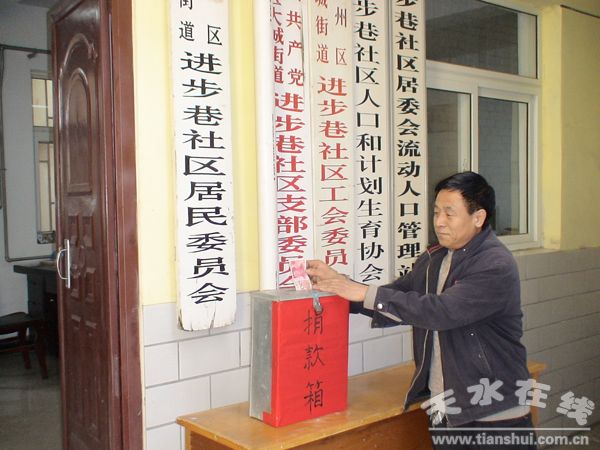 街道
区
进步巷社区居民委员会
共产党
大城街道
进步巷社区支部委员会
州区
城街道
进步巷社区工会委员会
步巷社区人口和计划生育协会
步巷社区居委会流动人口管理站
捐款箱
天水在线
www.tianshui.com.cn